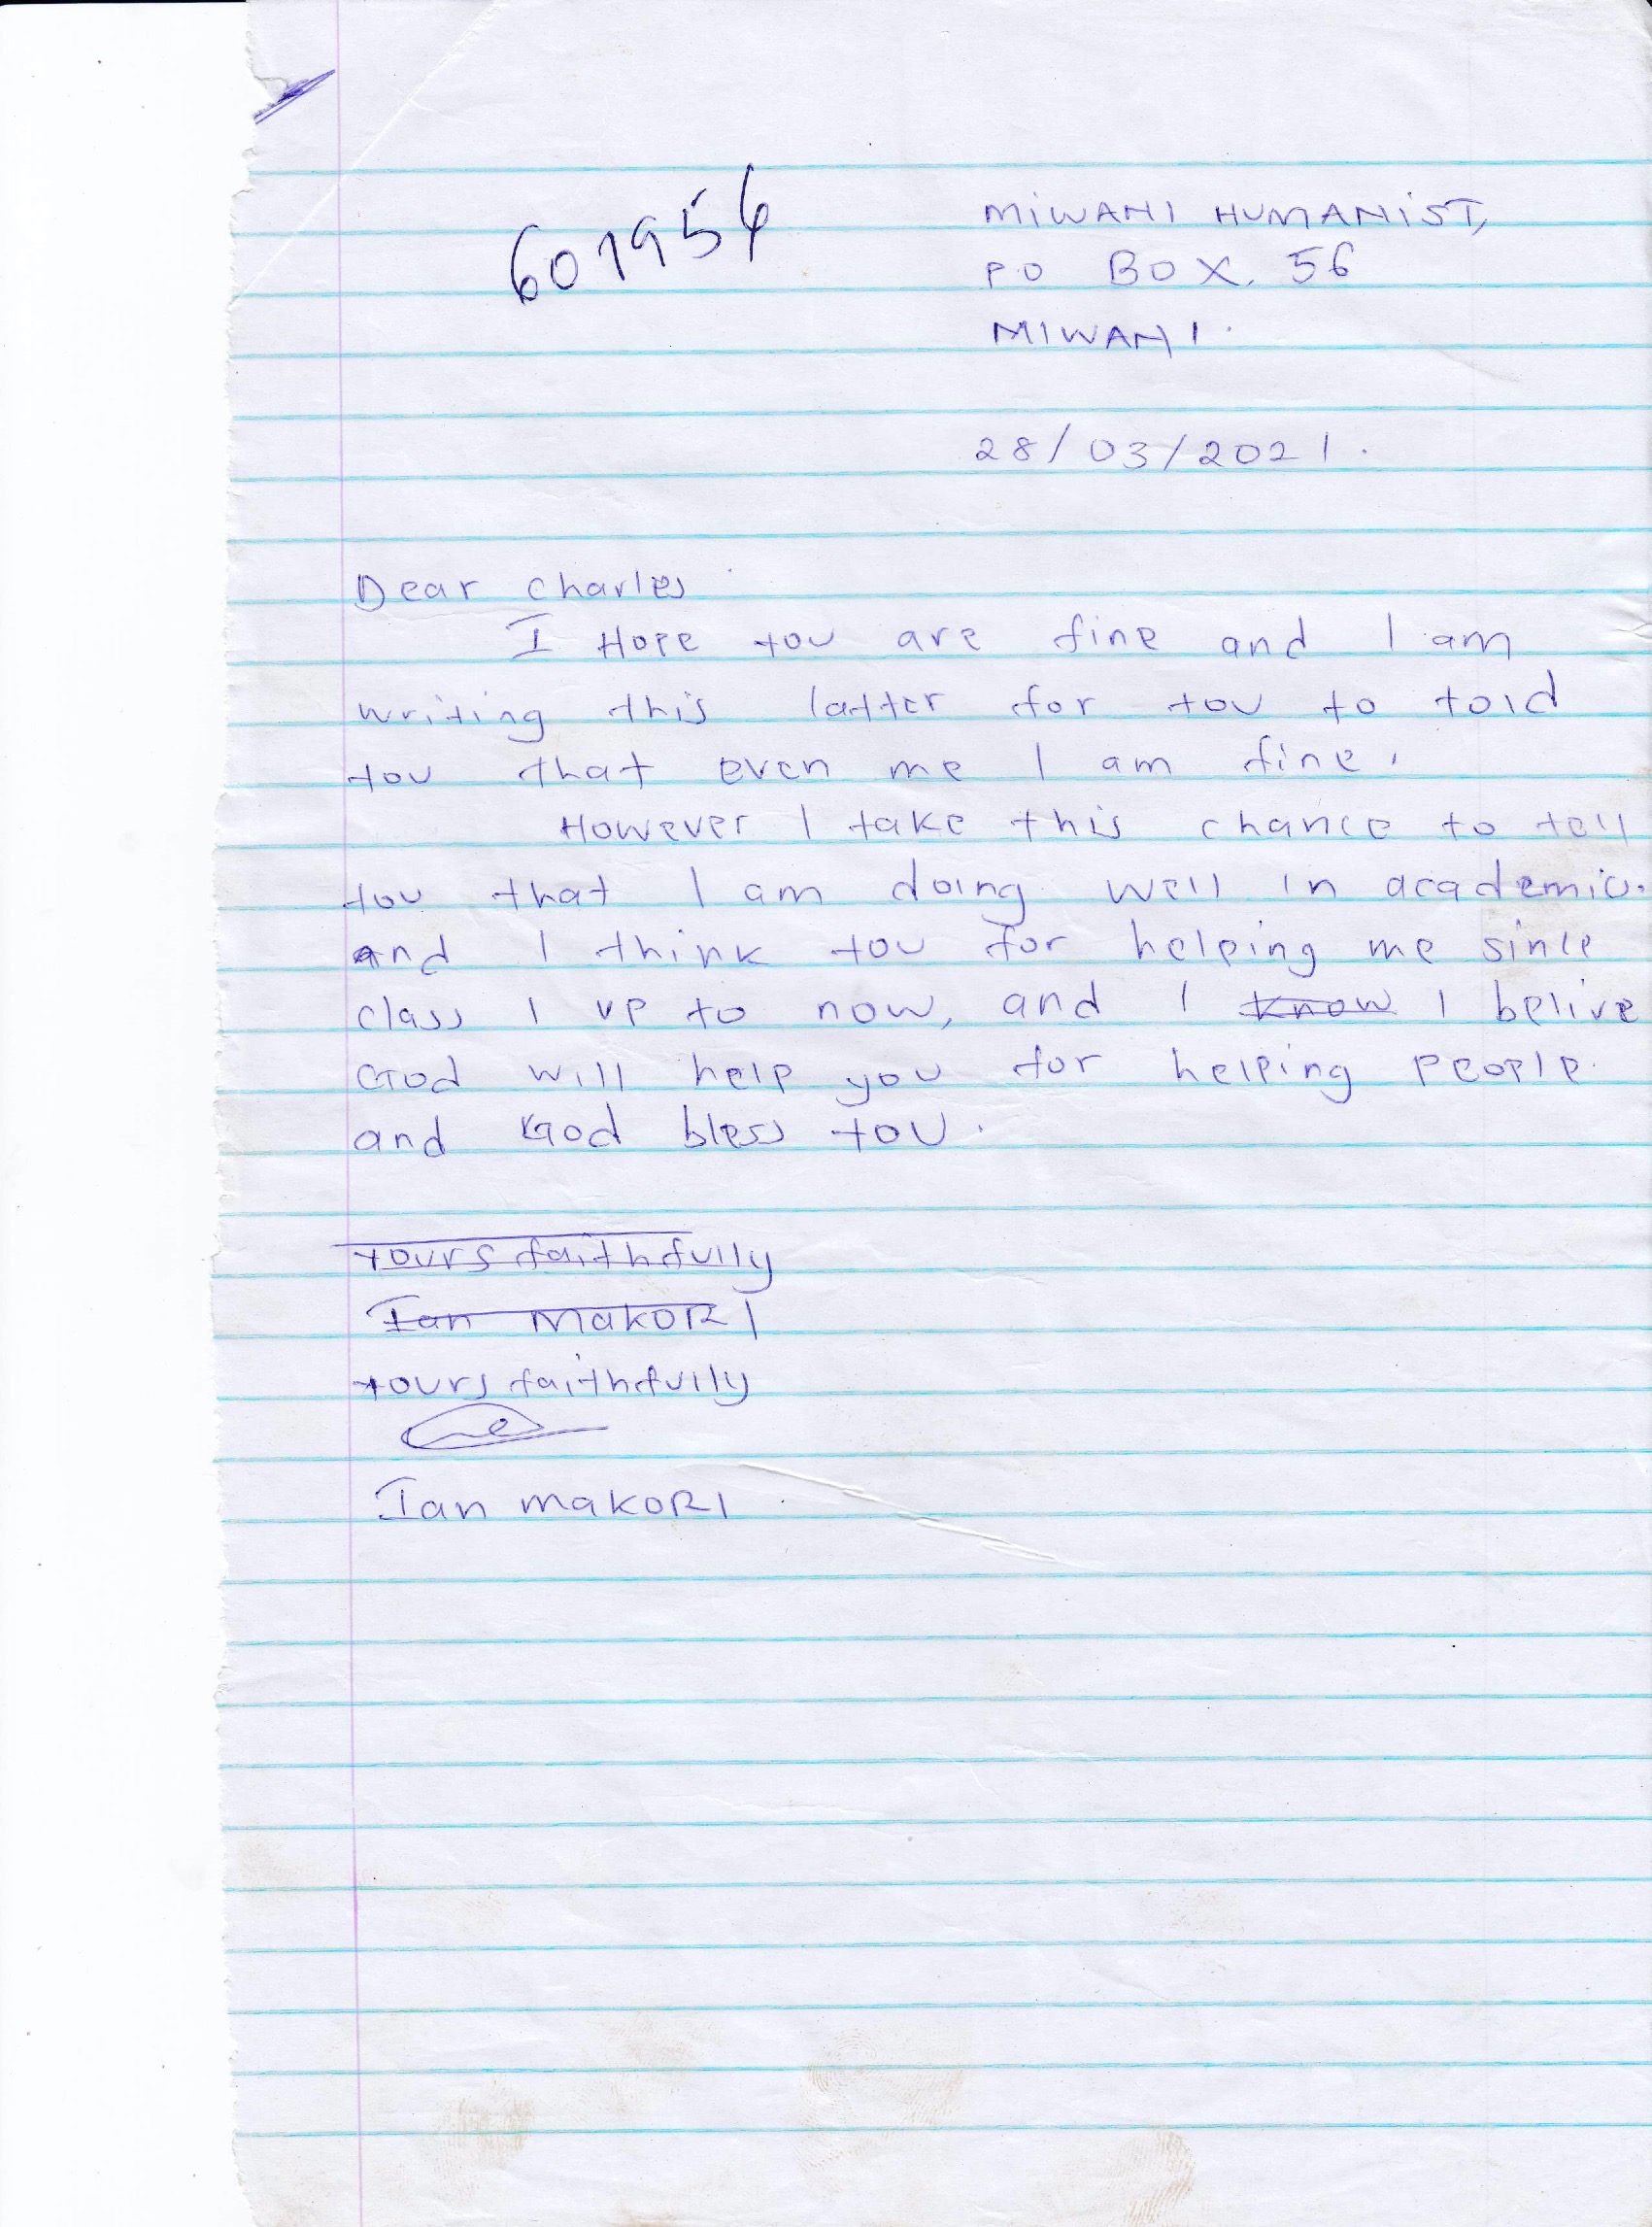 601954
MIWANI HUMANIST,
PO BOX. 56
MIWANI.
28/03/2021.
Dear Charles
I Hope you are fine and I am
writing this latter for you to told
you that even me I am fine.
However I take this chance to tell
you that I am doing well in academic.
And I think you for helping me since
class 1 up to now, and I know I belive
God will help you for helping people.
and God bless you.
Yours faithfully
Ian MakORI
Yours faithfully
Ian makORI